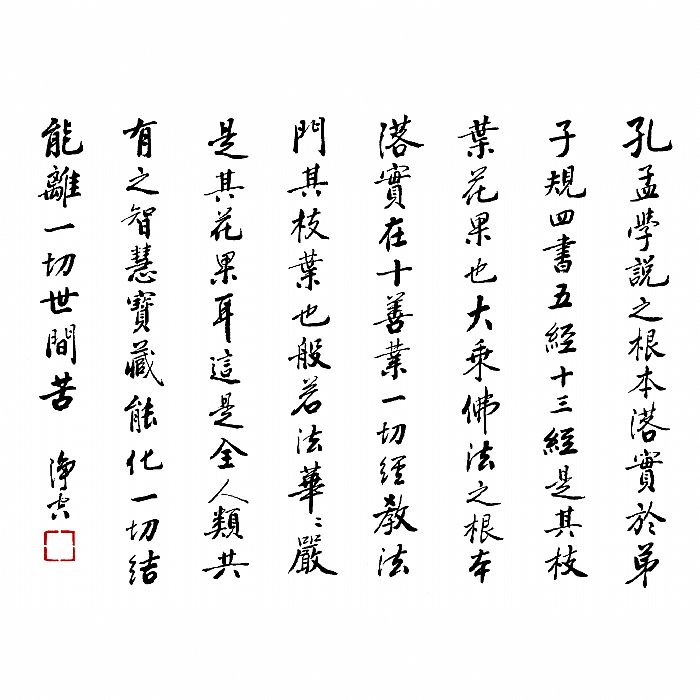 孔孟學說之根本落實於弟
子規四書五經十三經是其枝
葉花果也大乘佛法之根本
落實在十善業一切經教法
門其枝葉也般若法華〻嚴
是其花果耳這是全人類共
有之智慧寶藏能化一切結
能離一切世間苦
淨空